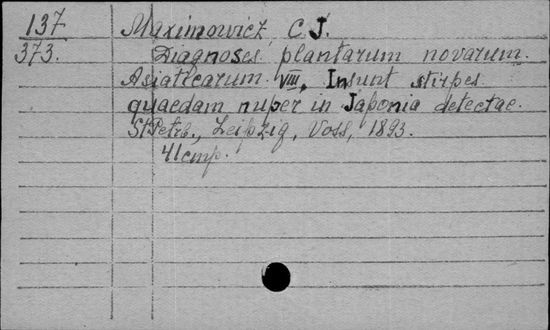 137 Maximowicz C. J.
373. Diagnoses plantarum novarum
Asiaticarum. VIII, Insunt stirpes
quaedam nuper in Japonia detectae.
St.Petrb., Leipzig, Voss, 1893.
41 стр.